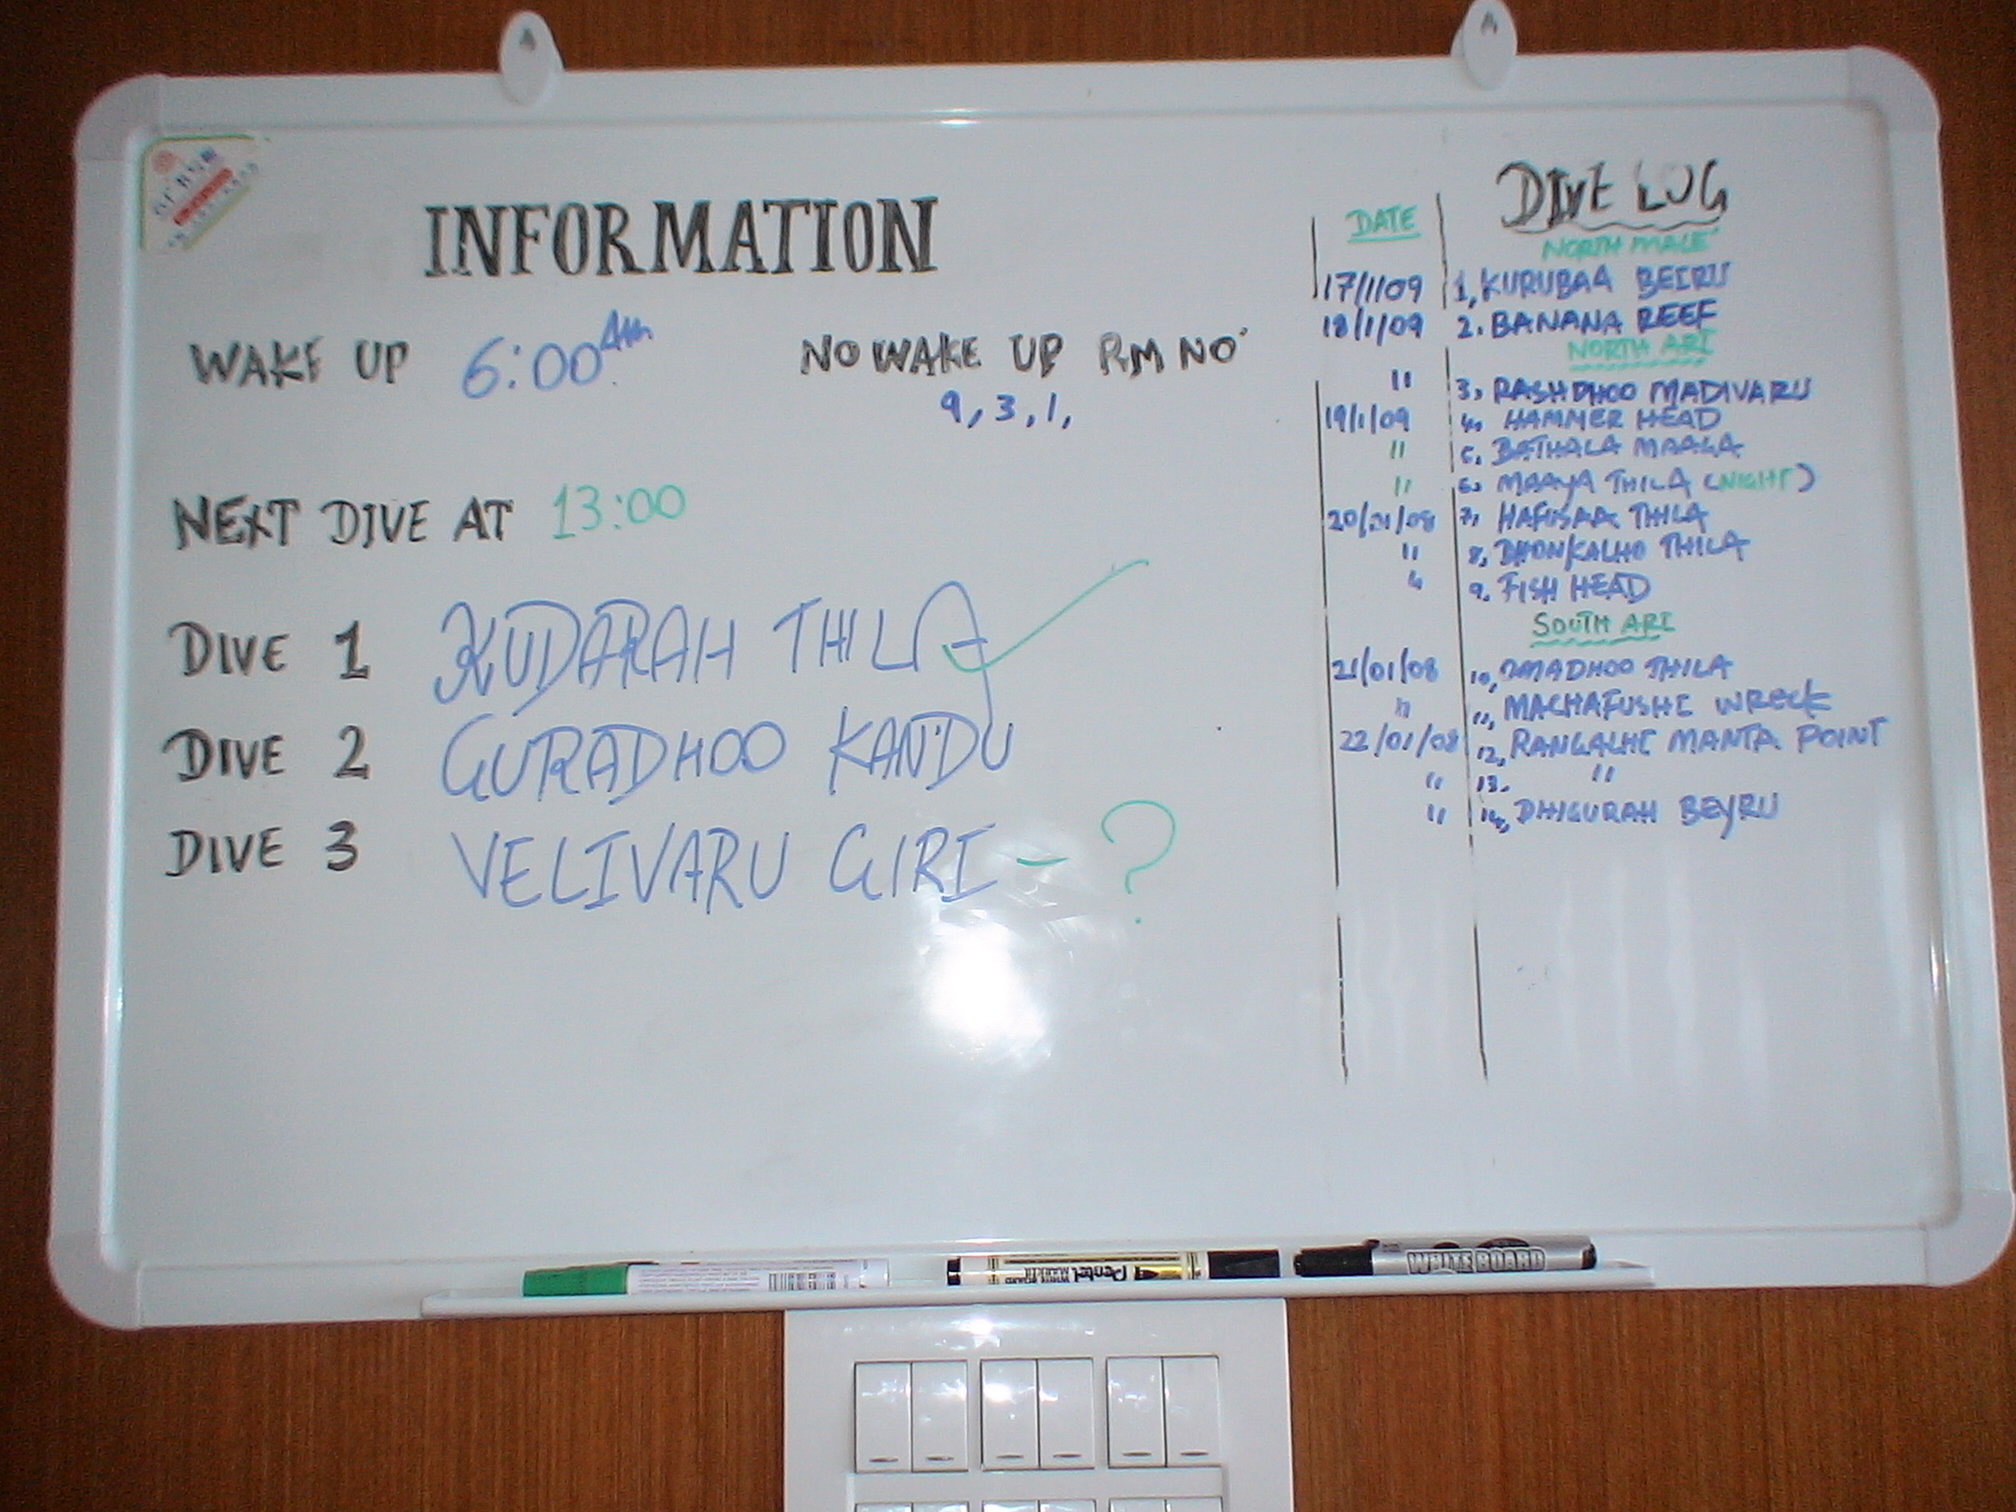 INFORMATION
WAKE UP 6:00 AM
NO WAKE UP RM NO
9, 3, 1,
NEXT DIVE AT 13:00
DIVE 1 KUDARAH THILA
DIVE 2 GURADHOO KANDU
DIVE 3 VELIVARU GIRI - ?
DATE DIVE LOG
NORTH MALE'
17/1/09 1, KURUBAA BEIRU
18/1/09 2. BANANA REEF
NORTH ARI
" 3, RASHDHOO MADIVARU
19/1/09 4, HAMMER HEAD
" 5, BATHALA MAAGA
" 6. MAAYA THILA (NIGHT)
20/01/08 7, HAFUSAA THILA
" 8, DHONKALHO THILA
" 9. FISH HEAD
SOUTH ARI
21/01/08 10, OMADHOO THILA
" 11, MACHAFUSHI WRECK
22/01/08 12, RANGALHI MANTA POINT
" 13. "
" 14, DHIGURAH BEYRU
Pentel
WHITE BOARD
MARKER
WHITE BOARD